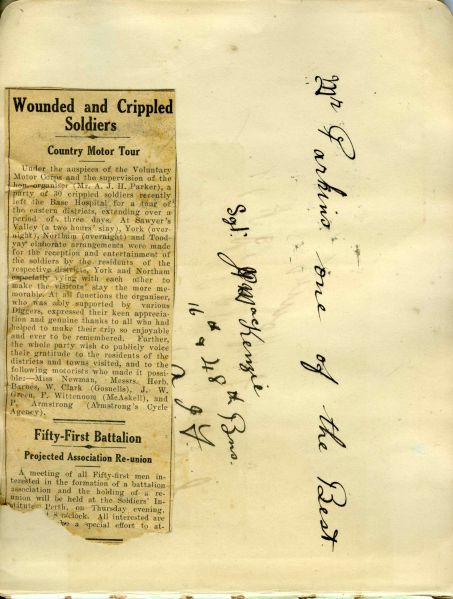 Wounded and Crippled
Soldiers
Country Motor Tour
Under the auspices of the Voluntary
Motor Corps and the supervision of the
hon. organiser (Mr. A. J. H. Parker), a
party of 30 crippled soldiers recently
left the Base Hospital for a tour of
the eastern districts, extending over a
period of three days. At Sawyer's
Valley (a two hours' stay), York (over-
night), Northam (overnight) and Tood-
yay elaborate arrangements were made
for the reception and entertainment of
the soldiers by the residents of the
respective districts, York and Northam
especially vying with each other to
make the visitors' stay the more me-
morable. At all functions the organiser,
who was ably supported by various
Diggers, expressed their keen apprecia-
tion and genuine thanks to all who had
helped to make their trip so enjoyable
and ever to be remembered. Further,
the whole party wish to publicly voice
their gratitude to the residents of the
districts and towns visited, and to the
following motorists who made it possi-
ble:—Miss Newman, Messrs. Herb.
Barnes, W. Clark (Gosnells), J. W.
Green, F. Wittenoom (McAskell), and
P. Armstrong (Armstrong's Cycle
Agency).
Fifty-First Battalion
Projected Association Re-union
A meeting of all Fifty-first men in-
terested in the formation of a battalion
association and the holding of a re-
union will be held at the Soldiers' In-
stitute, Perth, on Thursday evening,
8 o'clock. All interested are
be a special effort to at-
Mr Parkins. one of the Best.
Sgt MacKenzie
16th & 48th Bns.